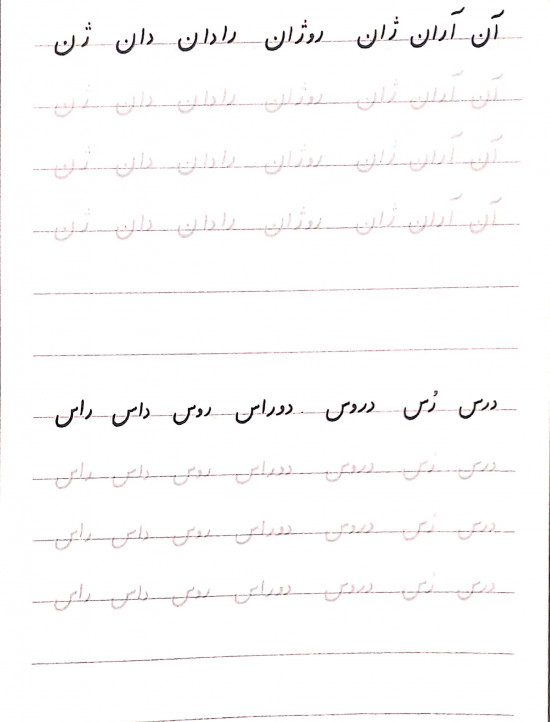 آن آران ژان روژان رادان دان ژن
آن آران ژان روژان رادان دان ژن
آن آران ژان روژان رادان دان ژن
آن آران ژان روژان رادان دان ژن
درس رُس دروس دوراس روس داس راس
درس رس دروس دوراس روس داس راس
درس رس دروس دوراس روس داس راس
درس رس دروس دوراس روس داس راس